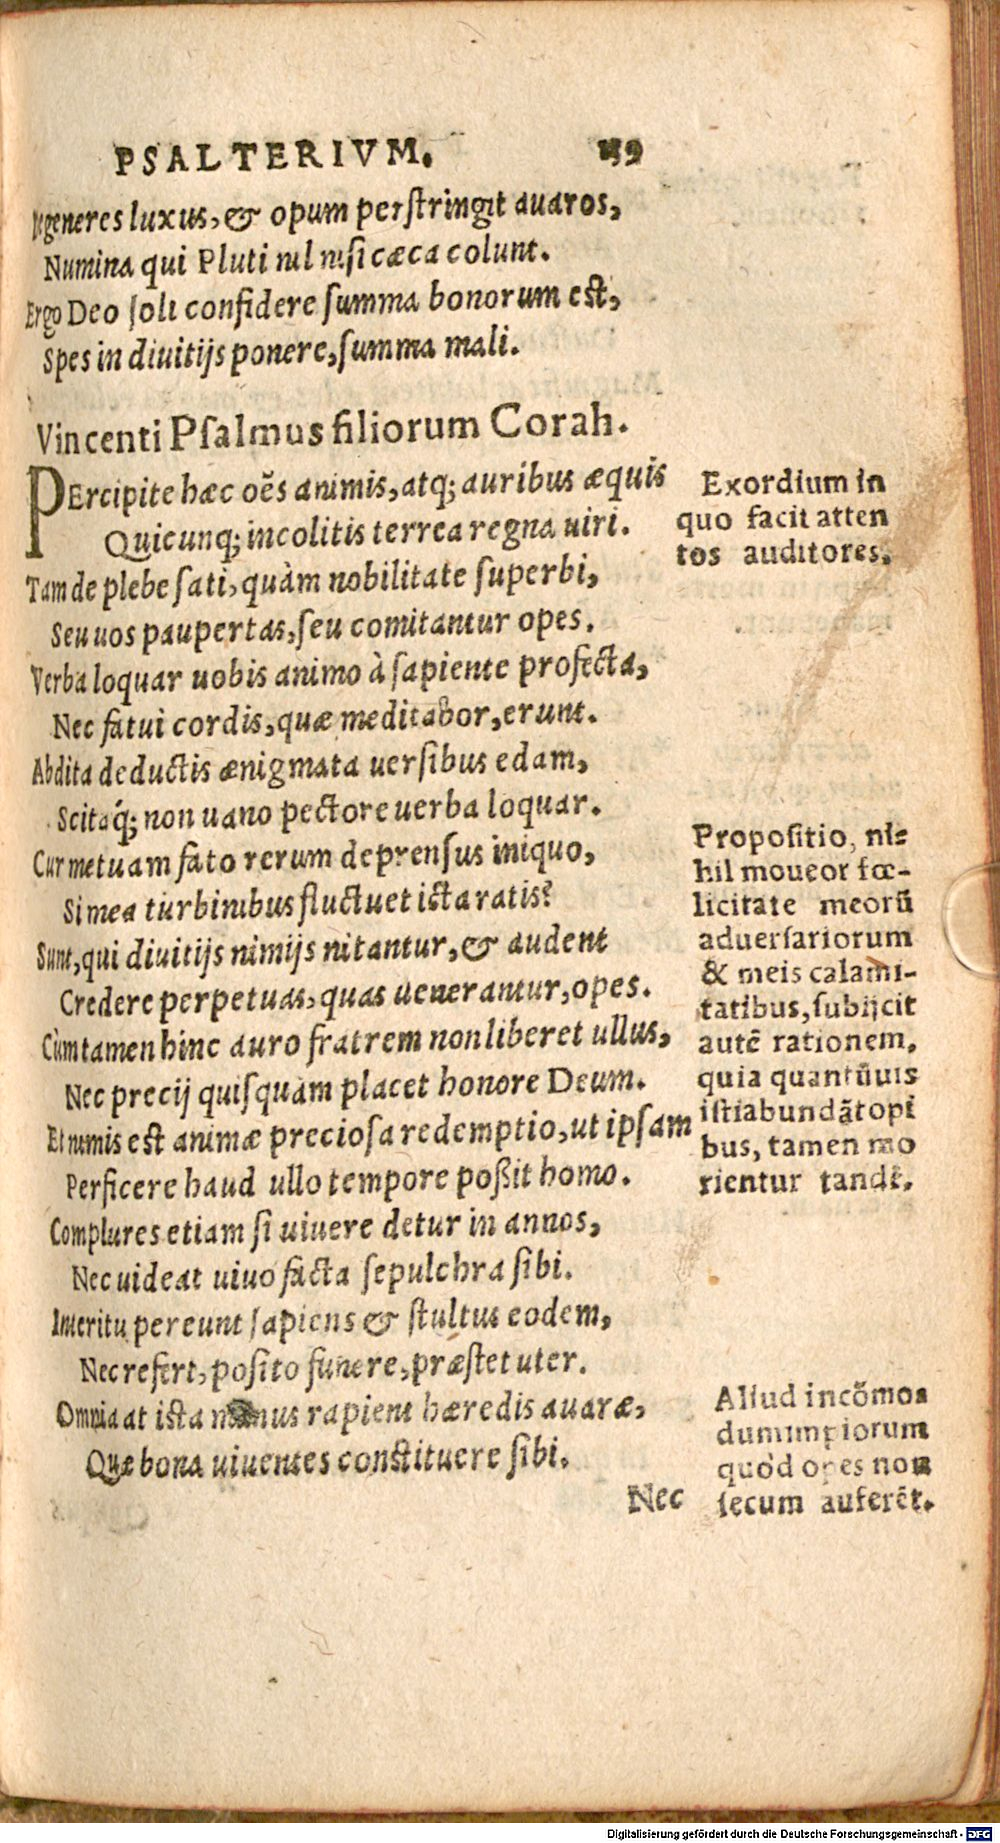 PSALTERIVM. 159
Degeneres luxus, & opum perstringit auaros,
Numina qui Pluti nil nisi cæca colunt.
Ergo Deo soli confidere summa bonorum est,
Spes in diuitijs ponere, summa mali.
Vincenti Psalmus filiorum Corah.
PErcipite hæc oẽs animis, atq; auribus æquis
Quicunq; incolitis terrea regna uiri.
Tam de plebe sati, quàm nobilitate superbi,
Seu uos paupertas, seu comitantur opes.
Verba loquar uobis animo à sapiente profecta,
Nec fatui cordis, quæ meditabor, erunt.
Abdita deductis ænigmata uersibus edam,
Scitaq́; non uano pectore uerba loquar.
Cur metuam fato rerum deprensus iniquo,
Si mea turbinibus fluctuet icta ratis?
Sunt, qui diuitijs nimijs nitantur, & audent
Credere perpetuas, quas uenerantur, opes.
Cùm tamen hinc auro fratrem non liberet ullus,
Nec precij quisquam placet honore Deum.
Et nimis est animæ preciosa redemptio, ut ipsam
Perficere haud ullo tempore poßit homo.
Complures etiam si uiuere detur in annos,
Nec uideat uiuo facta sepulchra sibi.
Interitu pereunt sapiens & stultus eodem,
Nec refert, posito funere, præstet uter.
Omnia at ista manus rapient hæredis auaræ,
Quæ bona uiuentes constituere sibi.
Nec
Exordium in
quo facit atten
tos auditores.
Propositio, ni-
hil moueor fœ-
licitate meorũ
aduersariorum
& meis calami-
tatibus, subijcit
autẽ rationem,
quia quantũuis
isti abundãt opi
bus, tamen mo
rientur tandẽ.
Aliud incõmo-
dum impiorum
quòd opes non
secum auferẽt.
Digitalisierung gefördert durch die Deutsche Forschungsgemeinschaft - DFG